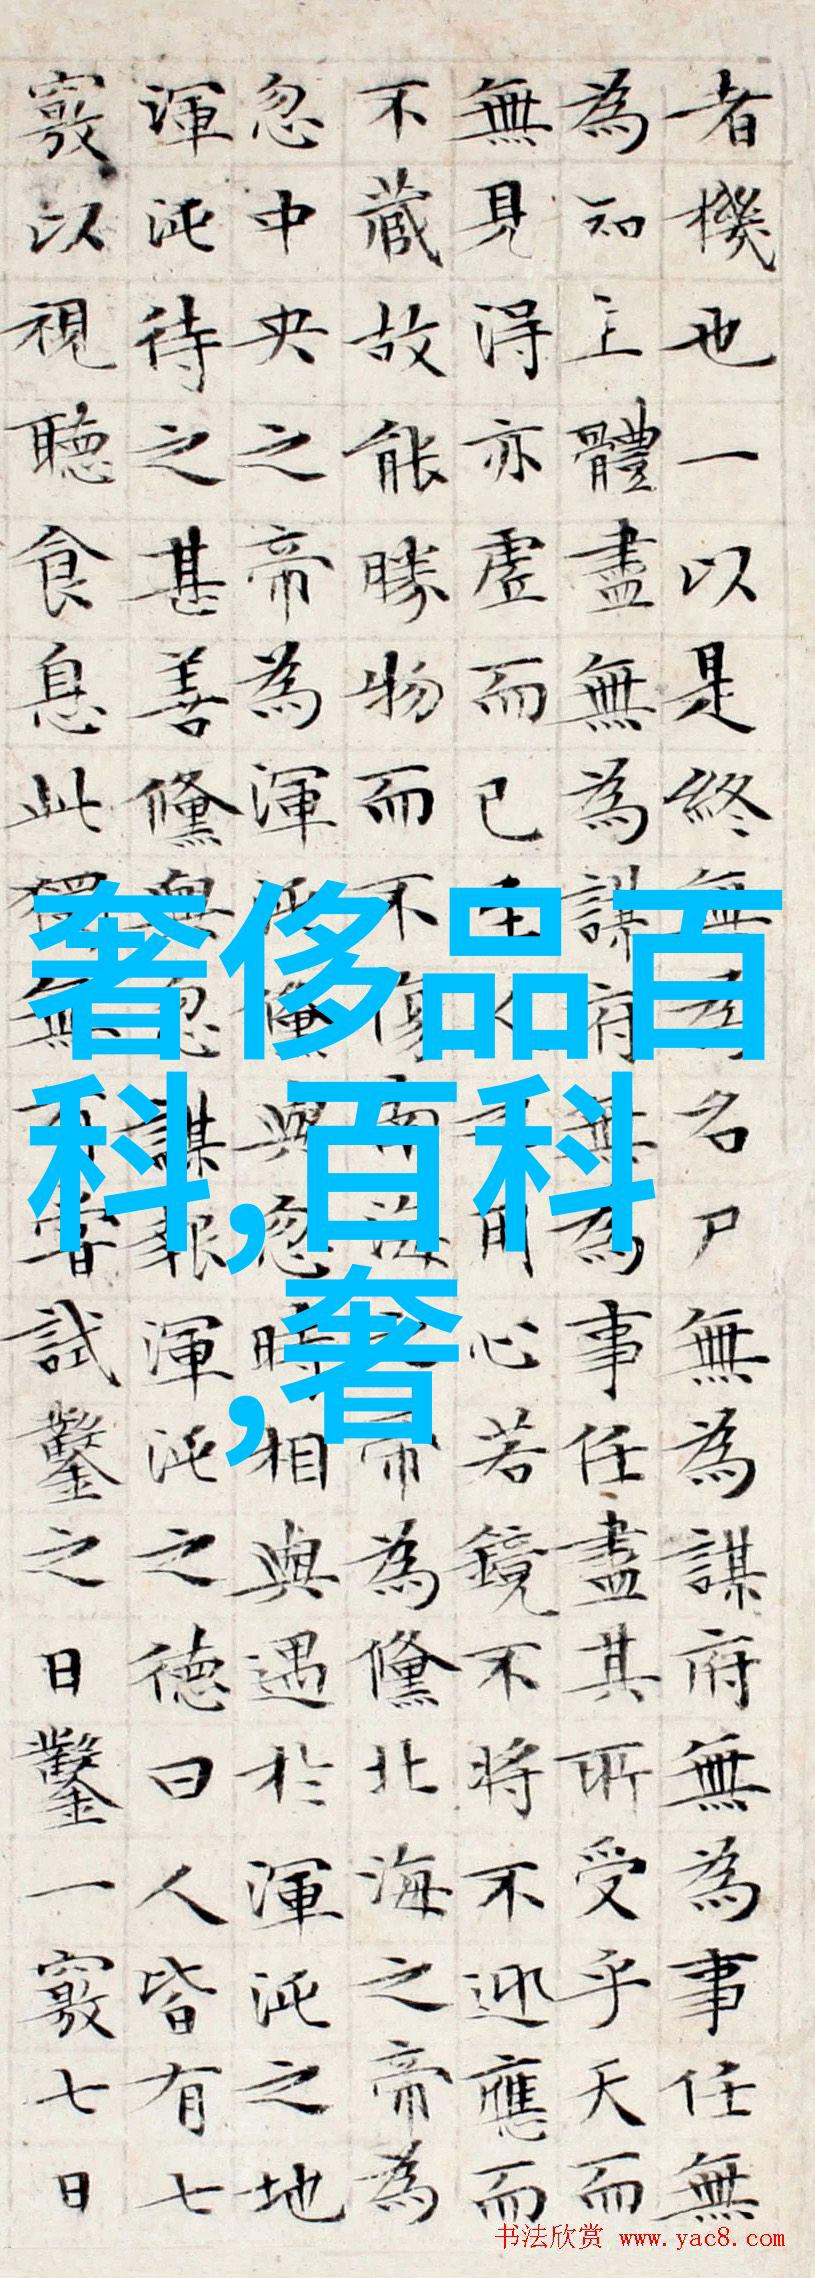 者機也一以是終無為名尸無為謀府無為事任無
為知主體盡無為謀府無為事任盡其所受乎天而
無見得亦虛而已至人之用心若鏡不將不迎應而
不藏故能勝物而不傷南海之帝為儵北海之帝為
忽中央之帝為渾沌儵與忽時相與遇於渾沌之地
渾沌待之甚善儵與忽謀報渾沌之德曰人皆有七
竅以視聽食息此獨無有嘗試鑿之日鑿一竅七日
奢侈品百
科,百科
,奢
书法欣赏 www.yac8.com